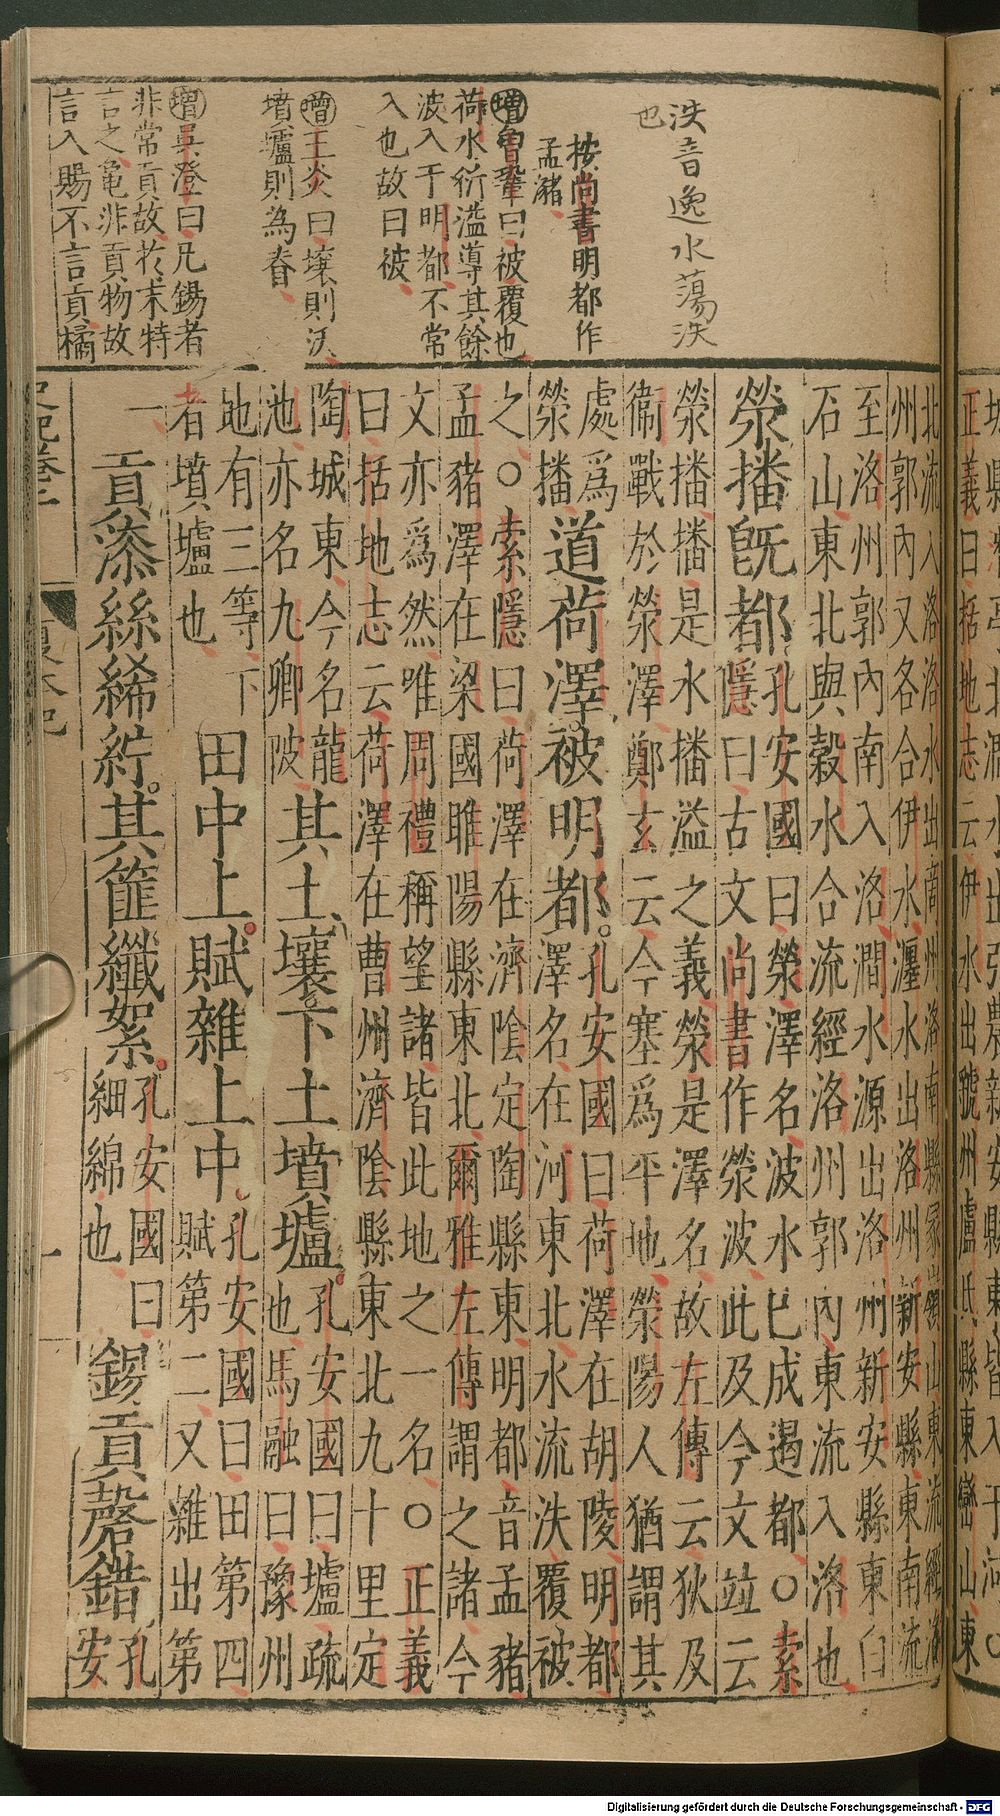 泆音逸水蕩泆
也
按尚書明都作
孟豬
增曾鞏曰被覆也
荷水衍溢導其餘
波入于明都不常
入也故曰被
增王炎曰壤則沃
墳壚則為眷
增吳澄曰凡錫者
非常貢故於末特
言之龜非貢物故
言入賜不言貢橘
北流入洛洛水出商州洛南縣冢嶺山東流經洛
州郭內又各合伊水瀍水出洛州新安縣東南流
至洛州郭內南入洛澗水源出洛州新安縣東白
石山東北與穀水合流經洛州郭內東流入洛也
滎播既都孔安國曰滎澤名波水已成遏都○索
隱曰古文尚書作滎波此及今文竝云
滎播播是水播溢之義滎是澤名故左傳云狄及
衛戰於滎澤鄭玄云今塞爲平地滎陽人猶謂其
處爲
滎播
道荷澤被明都
孔安國曰荷澤在胡陵明都
澤名在河東北水流泆覆被
之○索隱曰荷澤在濟陰定陶縣東明都音孟豬
孟豬澤在梁國睢陽縣東北爾雅左傳謂之諸今
文亦爲然唯周禮稱望諸皆此地之一名○正義
曰括地志云荷澤在曹州濟陰縣東北九十里定
陶城東今名龍
池亦名九卿陂
其土壤下土墳壚
孔安國曰壚疏
也馬融曰豫州
地有三等下
者墳壚也
田中上賦雜上中
孔安國曰田第四
賦第二又雜出第
一
貢漆絲絺紵其篚纖絮
孔安國曰
細綿也
錫貢磬錯
孔
安
史記卷二
夏本紀
正義曰括地志云伊水出虢州盧氏縣東巒山東
Digitalisierung gefördert durch die Deutsche Forschungsgemeinschaft - DFG